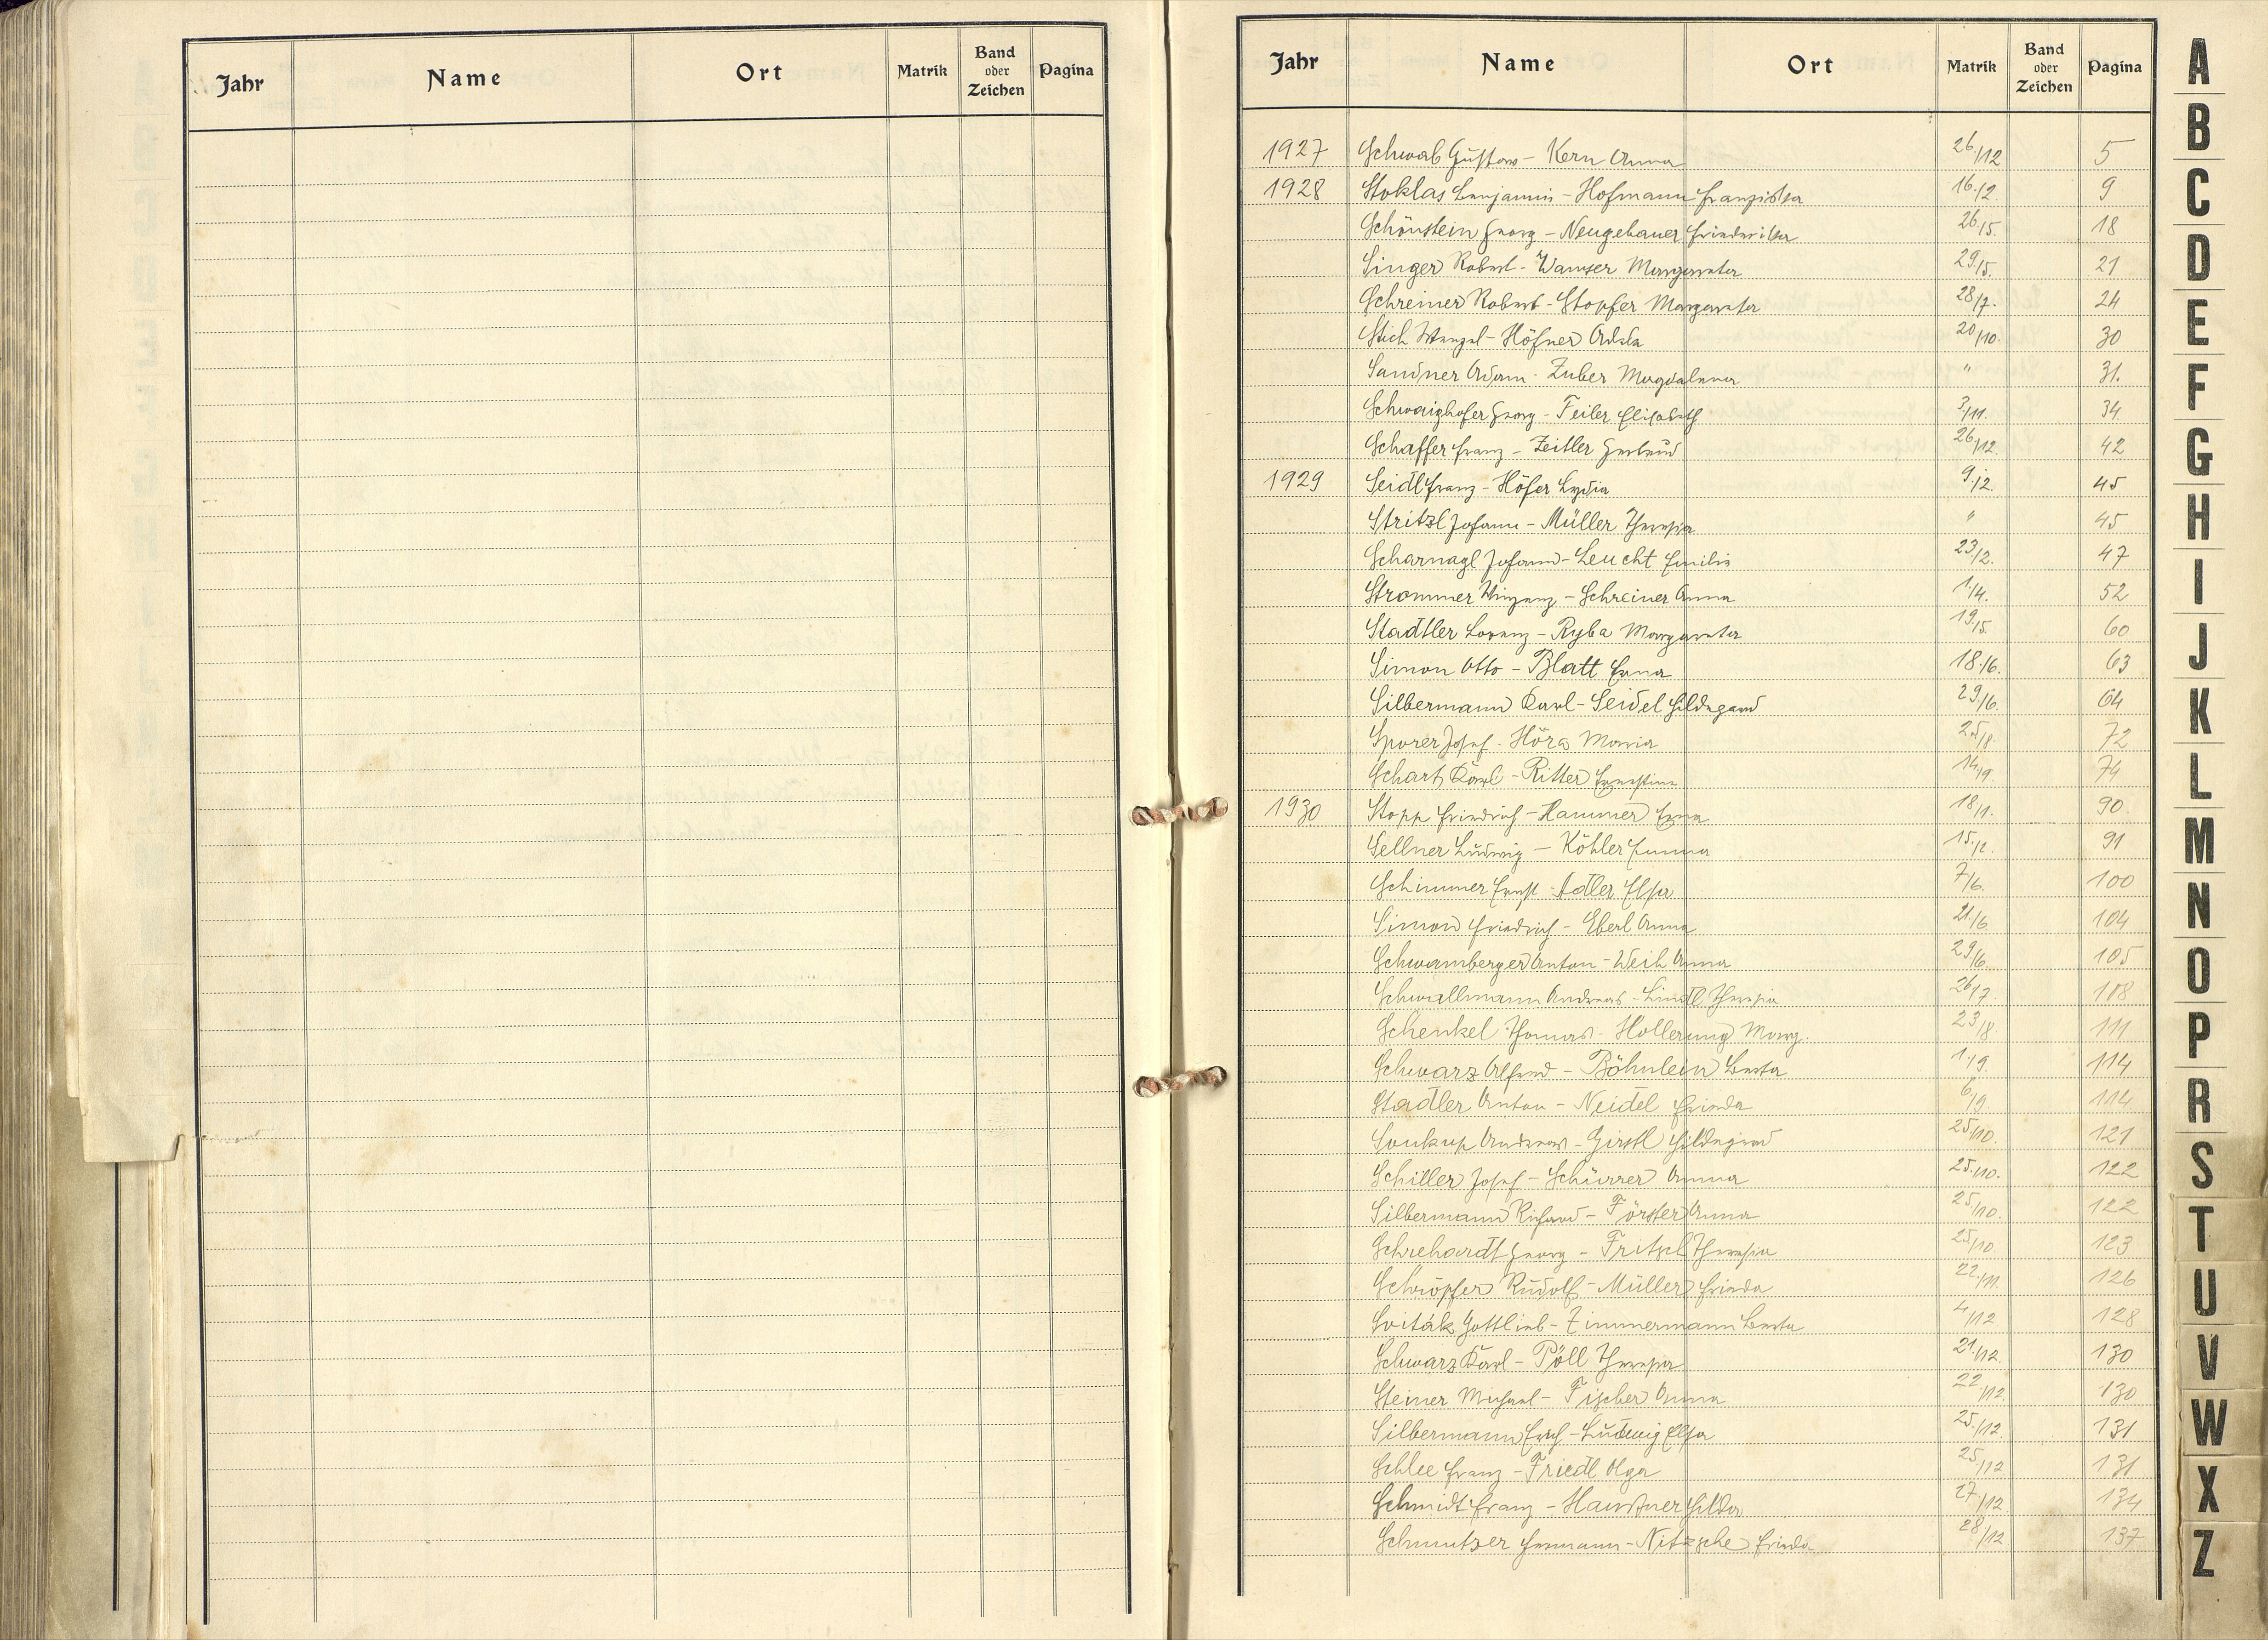 Jahr Name Ort Matrik Band oder Zeichen Pagina
Jahr Name Ort Matrik Band oder Zeichen Pagina
1927 Schwab Gustav - Kern Anna 26/12 5
1928 Stoklas Benjamin - Hofmann Franziska 16./2. 9
Schönstein Georg - Neugebauer Friederika 26/5. 18
Singer Robert - Wamser Margareta 29/5. 21
Schreiner Robert - Stopfer Margareta 28/7. 24
Stich Wenzel - Höfner Adela 20/10. 30
Sandner Adam - Zuber Magdalena " 31.
Schwaighofer Georg - Feiler Elisabeth 3/11. 34
Schaffer Franz - Zeitler Gertrud 26/12. 42
1929 Seidl Franz - Höfer Lydia 9./2. 45
Stritzl Johann - Müller Theresia " 45
Scharnagl Johann - Leucht Emilie 23/2. 47
Strommer Vinzenz - Schreiner Anna 1./4. 52
Stadtler Lorenz - Ryba Margareta 19/5. 60
Simon Otto - Blatt Erna 18./6. 63
Silbermann Karl - Seidel Hildegard 29/6. 64
Sporer Josef - Höra Maria 25/8. 72
Schart Karl - Ritter Ernestine 14/9. 74
1930 Stopp Friedrich - Hammer Erna 18/1. 90
Sellner Ludwig - Köhler Emma 15./2. 91
Schimmer Ernst - Adler Elsa 7/6. 100
Simon Friedrich - Eberl Anna 21./6. 104
Schwamberger Anton - Weih Anna 29/6. 105
Schwallmann Andreas - Lindl Theresia 26/7. 108
Schenkel Thomas - Hollerung Marg. 23/8. 111
Schwarz Alfred - Böhnlein Berta 1./9. 114
Stadler Anton - Neidel Frieda 6./9. 114
Soukup Andreas - Girstl Hildegard 25/10. 121
Schiller Josef - Schürrer Anna 25./10. 122
Silbermann Richard - Förster Anna 25/10. 122
Schrehardt Georg - Fritsch Theresia 25/10. 123
Schröpfer Rudolf - Müller Frieda 22./11. 126
Sviták Gottlieb - Zimmermann Berta 4/12 128
Schwarz Karl - Pöll Theresia 21./12. 130
Steiner Michael - Fischer Anna 22/12. 130
Silbermann Erich - Ludwig Elsa 25/12. 131
Schlee Franz - Friedl Olga 25/12 131
Schmidt Franz - Haustner Hilda 27/12 134
Schmutzer Hermann - Nitzsche Frieda 28/12 137
A
B
C
D
E
F
G
H
I
J
K
L
M
N
O
P
R
S
T
U
V
W
X
Z